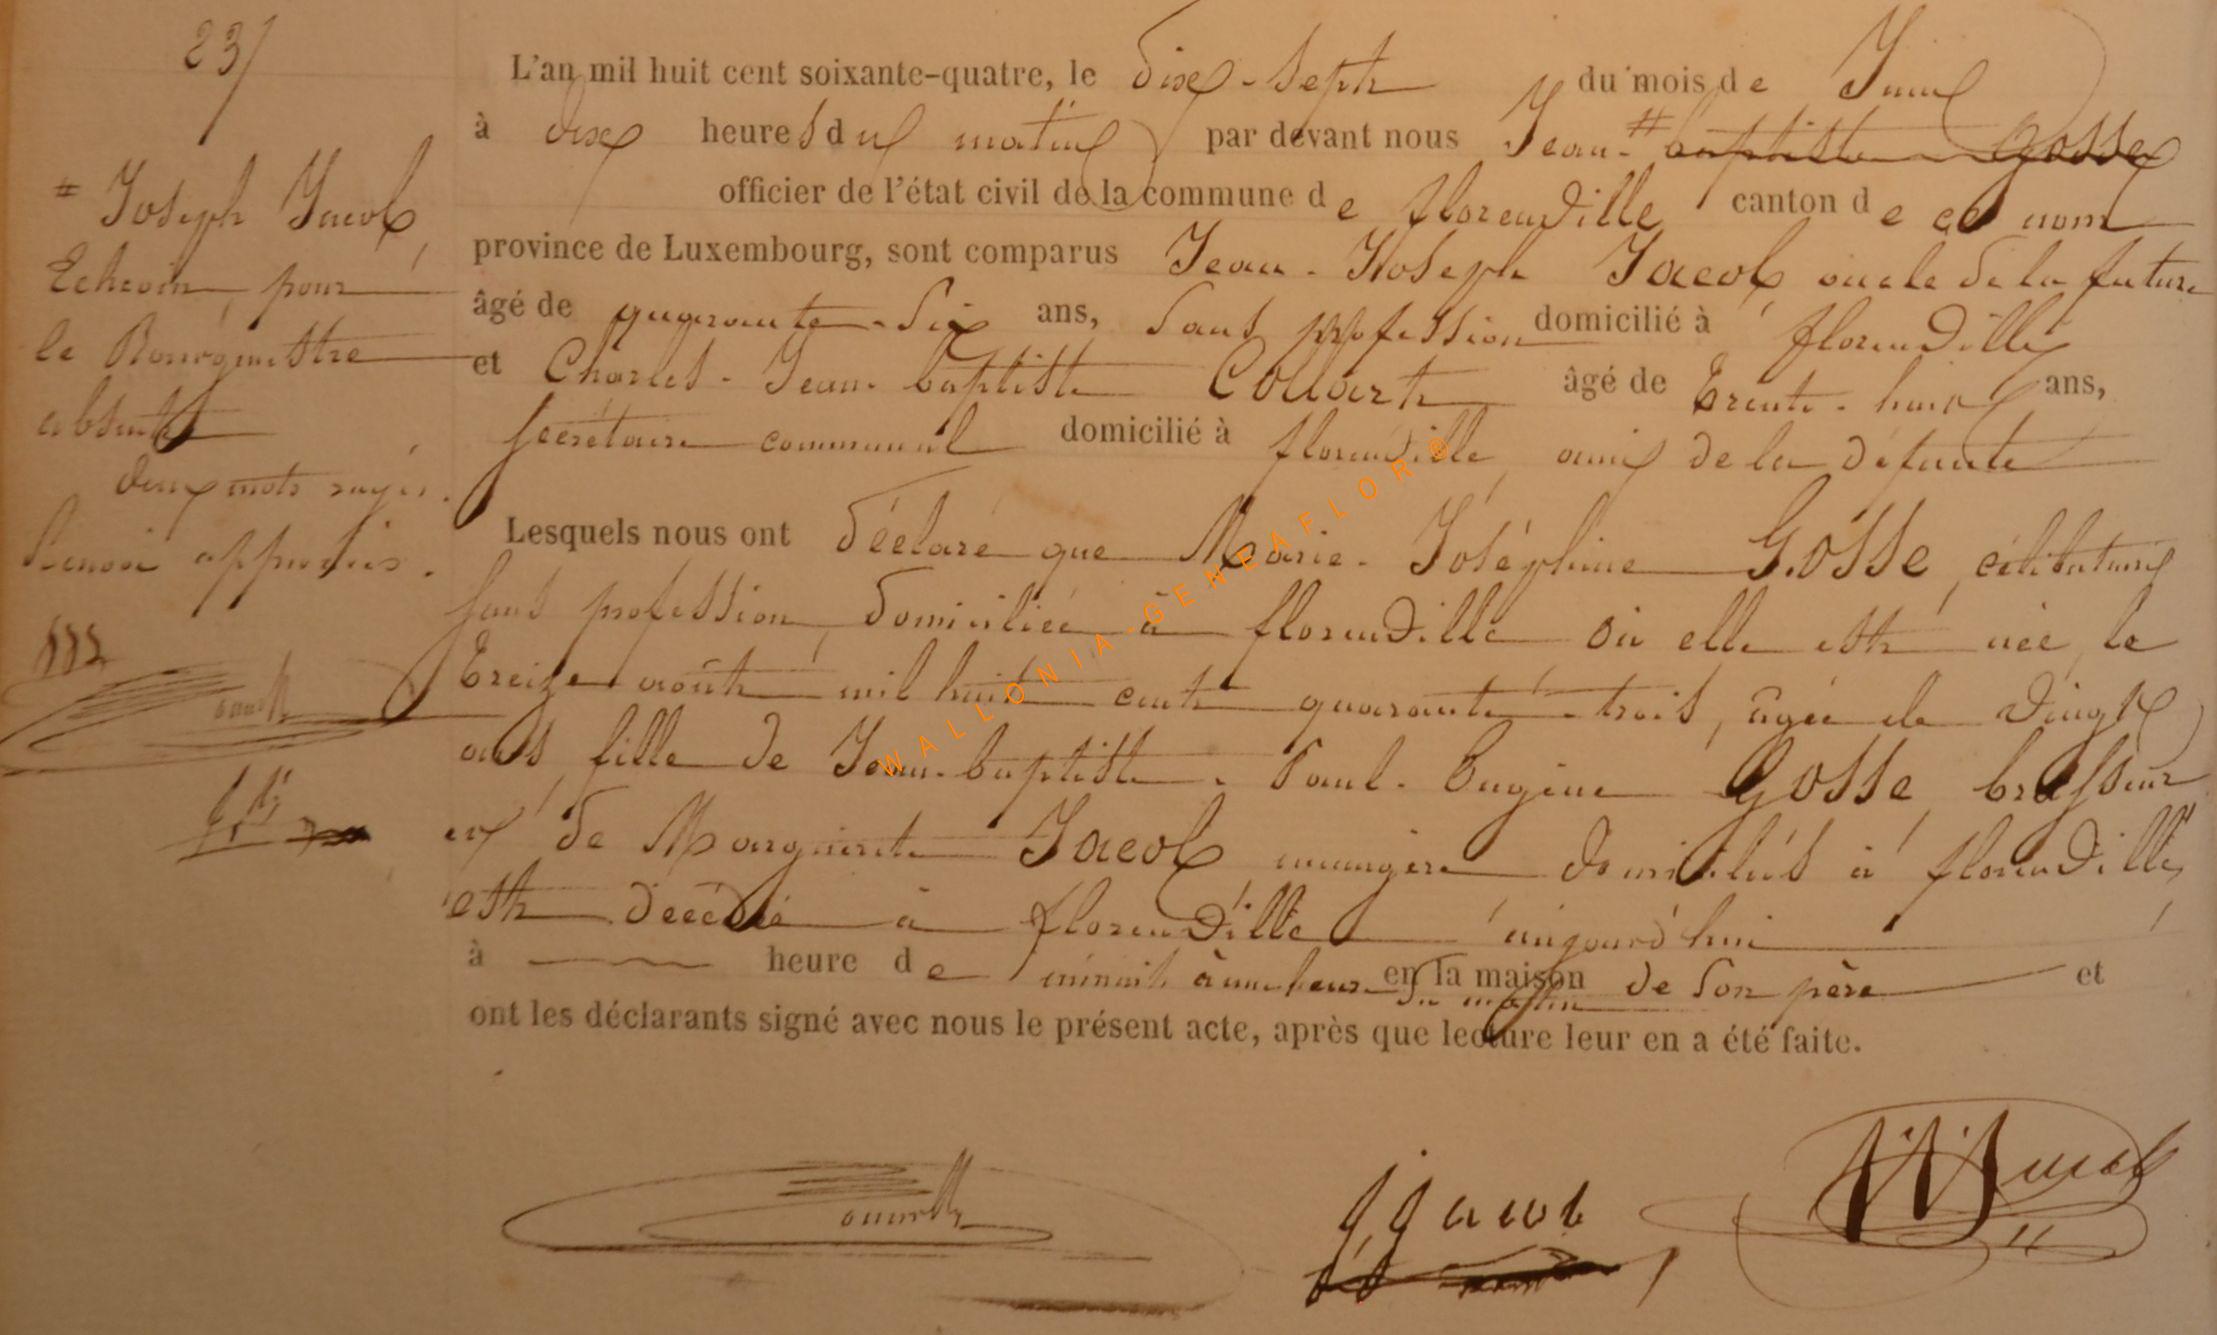 23/
L'an mil huit cent soixante-quatre, le dix-sept du mois de Juin
à dix heures du matin par devant nous Jean-# baptiste Gosse
officier de l'état civil de la commune de florenville canton de ce nom
province de Luxembourg, sont comparus Jean-Joseph Jacob oncle de la future
âgé de quarante-six ans, sans profession domicilié à florenville
et Charles-Jean-baptiste Collart âgé de trente-huit ans,
secrétaire communal domicilié à florenville, ami de la défunte
Lesquels nous ont déclaré que Marie-Joséphine GOSSE, célibataire
sans profession, domiciliée à florenville où elle est née, le
treize août mil huit cent quarante-trois, âgée de vingt
ans, fille de Jean-baptiste-Paul-Eugène GOSSE, brasseur
et de Marguerite Jacob, ménagère domiciliés à florenville,
est décédé à florenville aujourd'hui
à heure de minuit à une heure du matin en la maison de son père et
ont les déclarants signé avec nous le présent acte, après que lecture leur en a été faite.
# Joseph Jacob,
Echevin, pour
le Bourgmestre
absent
deux mots rayés.
Renvoi approuvés.
JJJacob
Jacob
WALLONIA-GENEAFLOR®